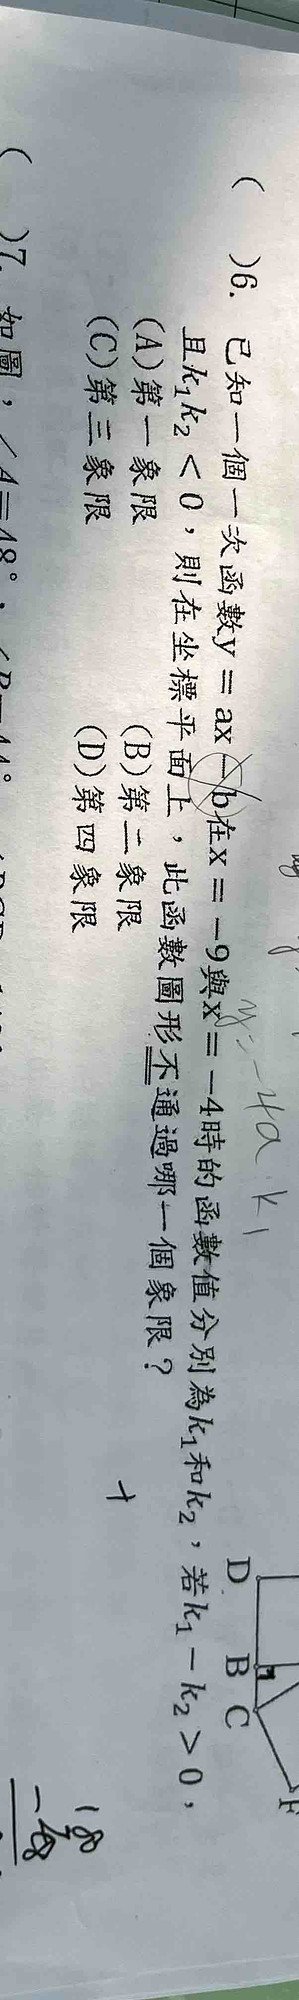 ( )6. 已知一個一次函數y = ax - b在x = -9與x = -4時的函數值分別為k₁和k₂，若k₁ - k₂ > 0，
且k₁k₂ < 0，則在坐標平面上，此函數圖形不通過哪一個象限？
(A)第一象限 (B)第二象限
(C)第三象限 (D)第四象限
( )7. 如圖，∠A=48°，
y=-4a k₁
+
D B C F
18
-48